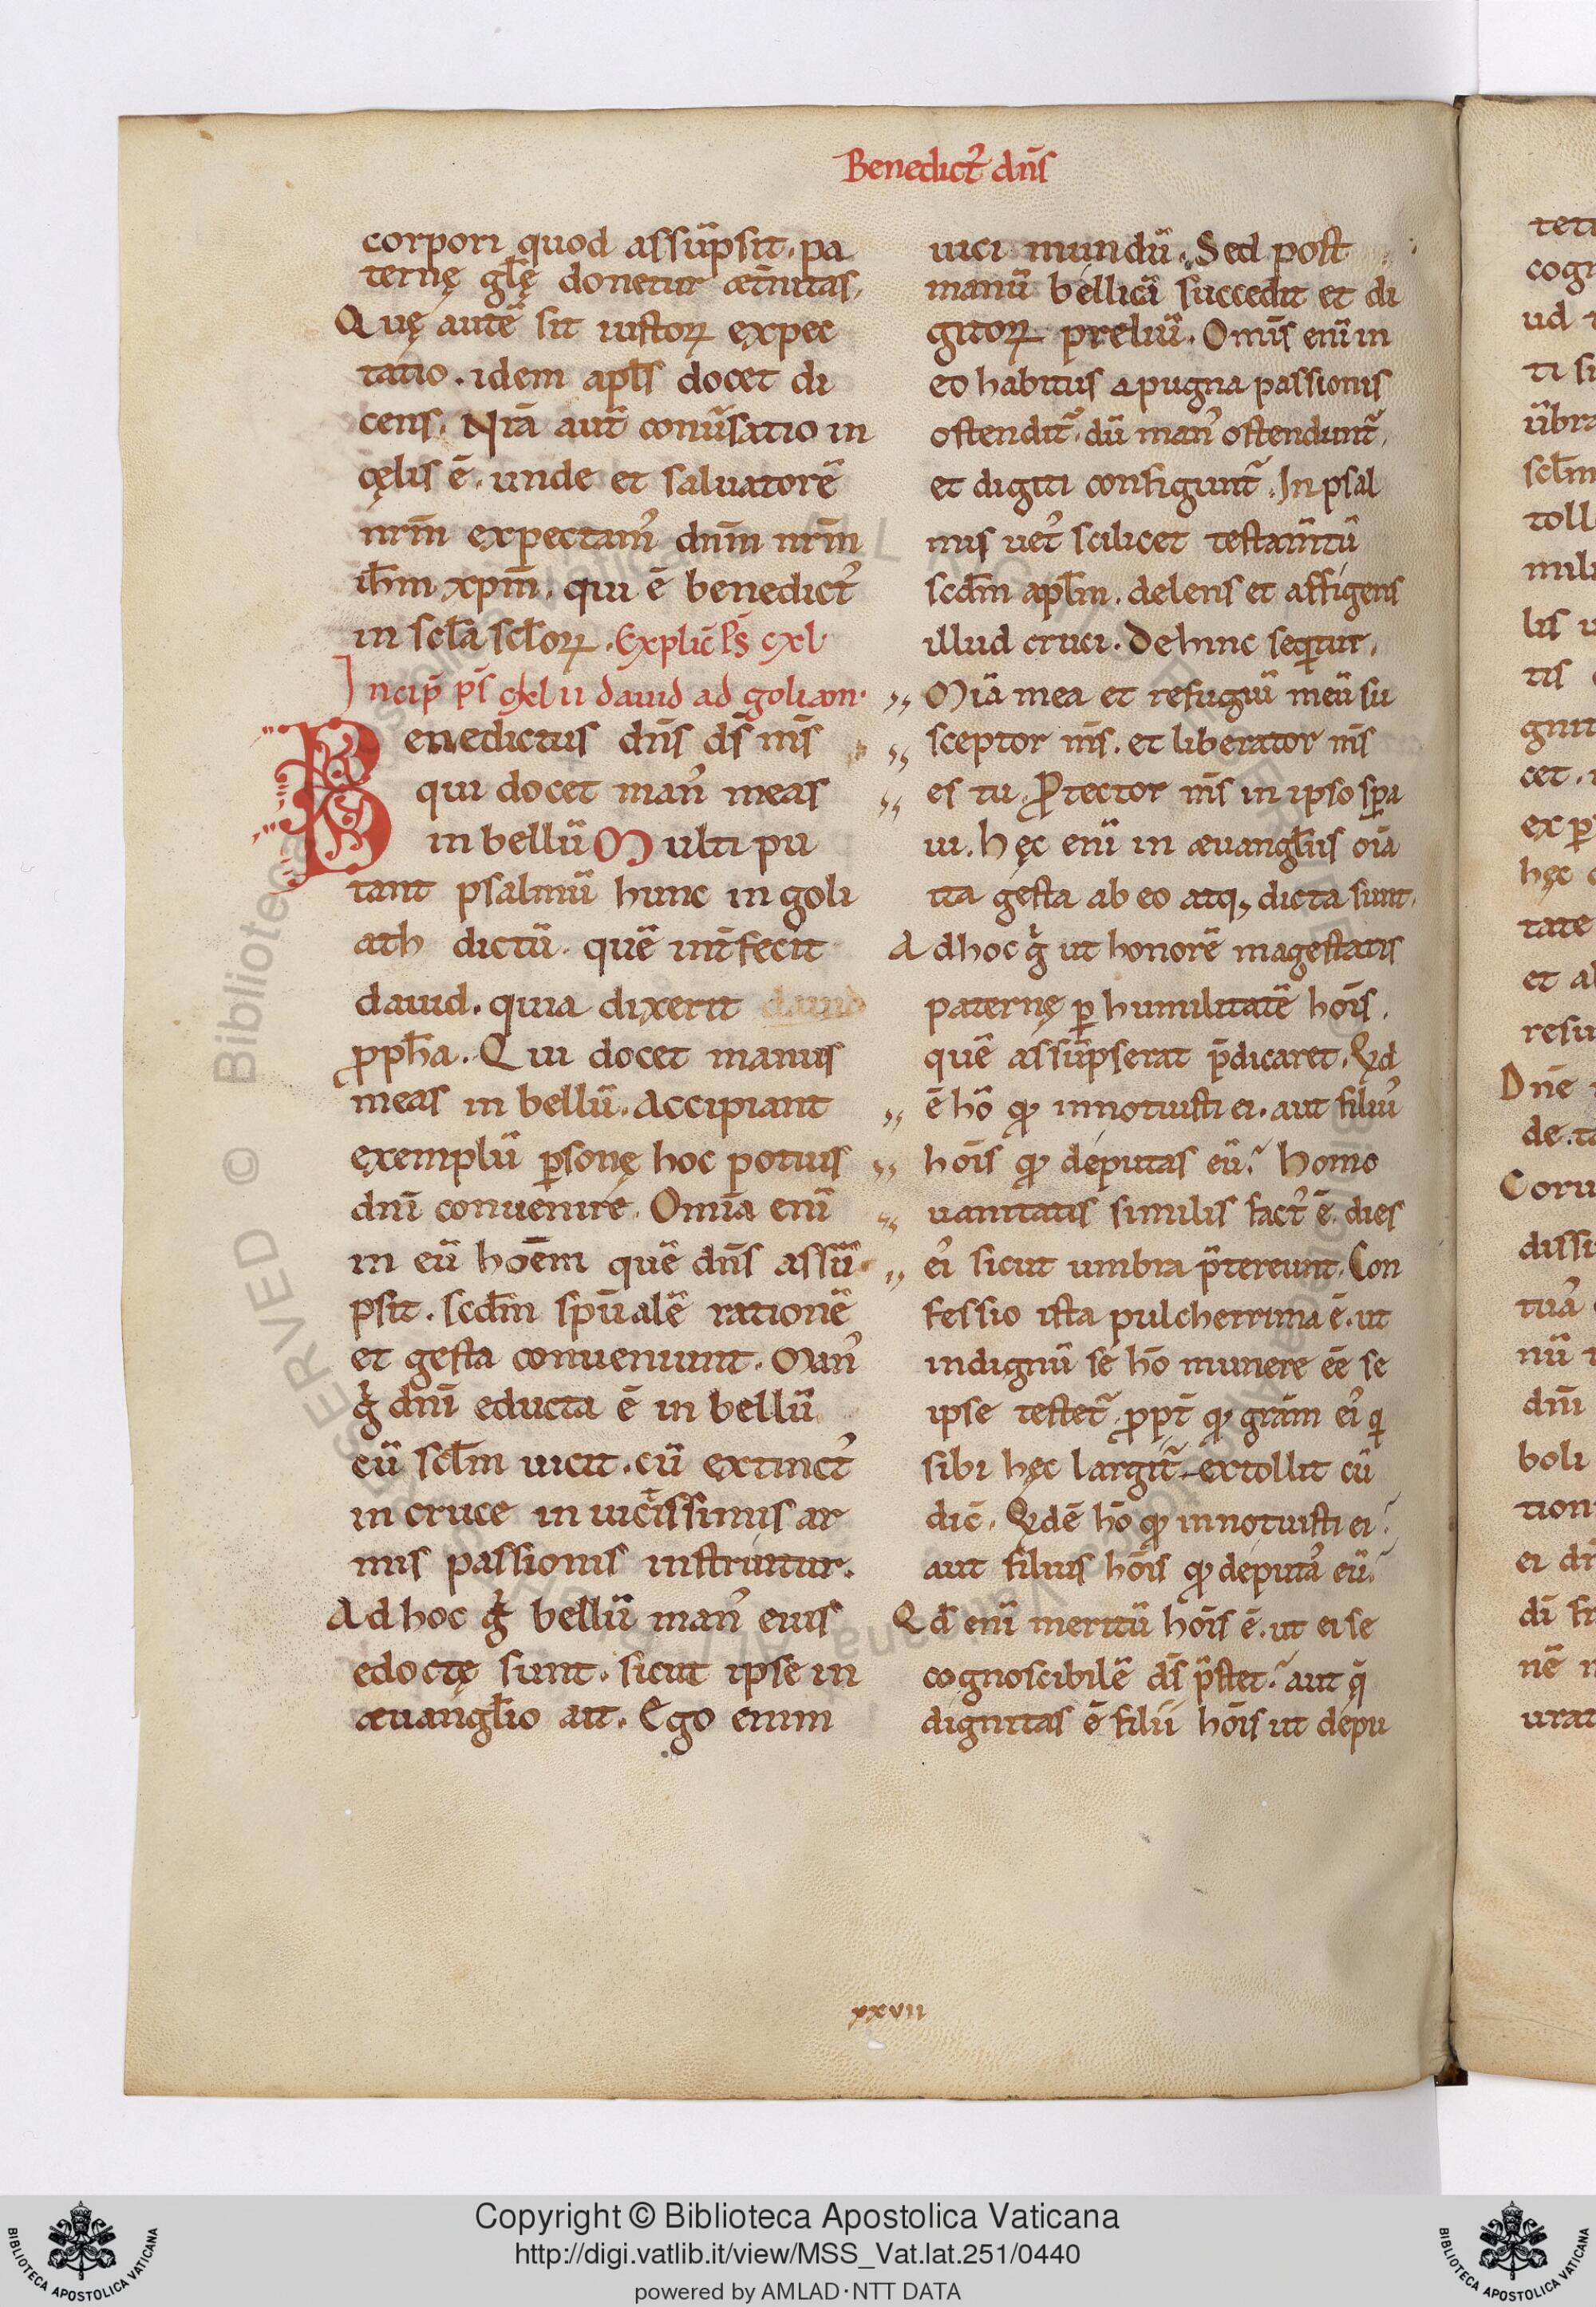 Benedict᷒ dn̄s
corpori quod assūpsit. pa
ternę gl̄ę donetur æt̄nitas.
Quę autē sit iustoꝝ expec
tatio. idem apl̄s docet di
cens. Nr̄a aut̄ conūsatio in
cęlis ē. unde et saluatorē
nrm̄ expectam᷒ dnm̄ nrm̄
ih̄m xpm̄. qui ē benedict᷒
in scl̄a scl̄oꝝ. Explic̄ Ps̄ cxl
Incip̄ ps̄ cxlii dauid ad golian.
Benedictus dn̄s ds̄ m̄s
qui docet man᷒ meas
in bellū Multi pu
tant psalmū hunc in goli
ath dictū. quē int̄fecit
dauid. quia dixerit dauid
ꝓph̄a. Qui docet manus
meas in bellū. Accipiant
exemplū ꝑsonę hoc potius
dn̄i conuenire. Omīa enī
in eū hoēm quē dn̄s assū
psit. scd̄m spūalē rationē
et gesta conueniunt. Man᷒
g̊ dn̄i educta ē in bellū
cū scl̄m uicit. cū extinct᷒
in cruce inuic̄tissimis ar
mis passionis instruitur.
Ad hoc g̊ bellū man᷒ eius
edoctę sunt. sicut ipse in
æuangl̄io ait. Ego enim
uici mundū. Sed post
manū bellicā succedit et di
gitoꝝ preliū. Omīs enī in
eo habitus a pugna passionis
ostendit᷑. dū man᷒ ostendunt᷑.
et digiti configunt᷑. In psal
mis uet᷒ scilicet testam̄tū
scd̄m apl̄m. delens et affigens
illud cruci. Dehinc seqitur.
Mīa mea et refugiū meū su
sceptor m̄s. et liberator m̄s
es tu. Ꝓtector m̄s in ipso spa
ui. Hęc enī in æuangl̄iis oīa
ita gesta ab eo atq; dicta sunt.
Ad hoc g̊ ut honorē magestatis
paternę ꝑ humilitatē hoīs.
quē assūpserat p̄dicaret. Qd
ē hō qđ innotuisti ei. aut filiu᷒
hoīs qđ deputas eū? Homo
uanitatis similis fact᷒ ē. dies
ei᷒ sicut umbra p̄tereunt. Con
fessio ista pulcherrima ē. ut
indignū se hō munere eē se
ipse testet᷑. ꝓpt̄ qđ grām ei᷒ qi
sibi hęc largit᷑ extollit cū
dic̄. Qd ē hō qđ innotuisti ei?
aut filius hoīs qđ deputa᷒ eū?
Qd̄ enī meritū hoīs ē. ut ei se
cognoscibilē ds̄ p̄stet? aut q̄
dignitas ē filii hoīs ut depu
xxvii
Copyright © Biblioteca Apostolica Vaticana
http://digi.vatlib.it/view/MSS_Vat.lat.251/0440
powered by AMLAD·NTT DATA
BIBLIOTECA APOSTOLICA VATICANA
BIBLIOTECA APOSTOLICA VATICANA